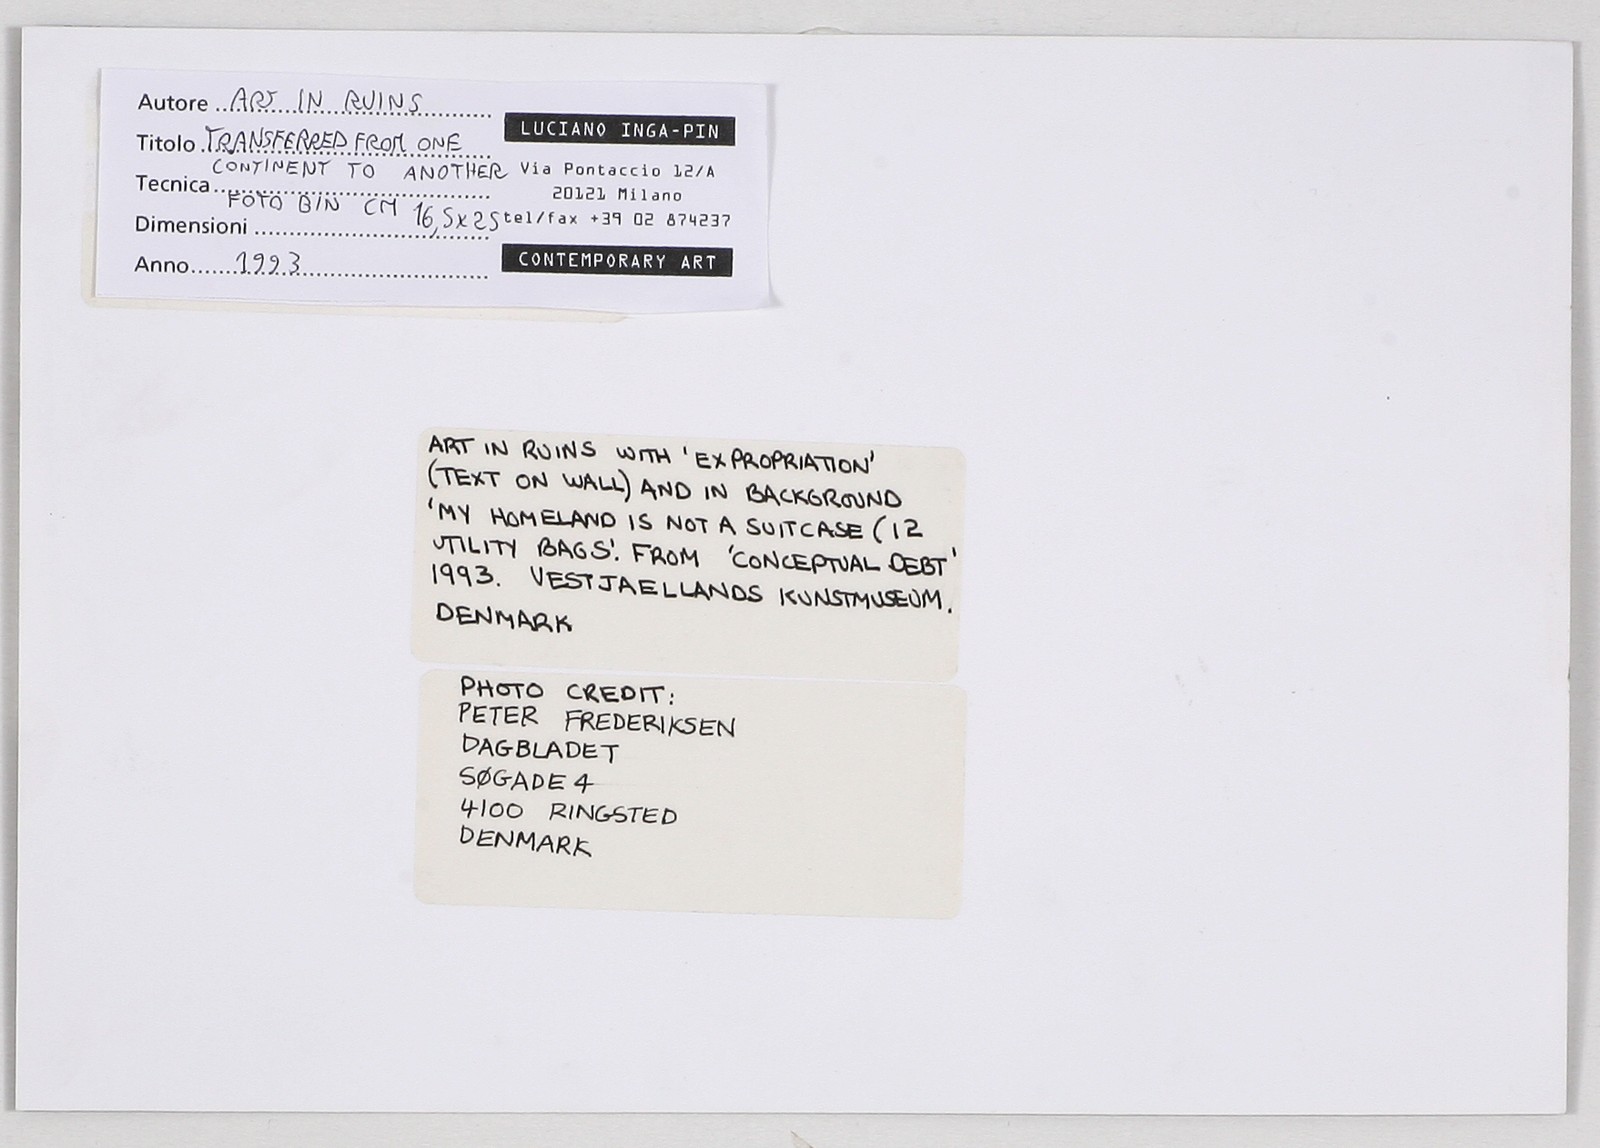 Autore ART IN RUINS
Titolo TRANSFERRED FROM ONE
CONTINENT TO ANOTHER
Tecnica
FOTO B/N CM 16,5x25
Dimensioni
Anno 1993
LUCIANO INGA-PIN
Via Pontaccio 12/A
20121 Milano
tel/fax +39 02 874237
CONTEMPORARY ART
ART IN RUINS WITH 'EXPROPRIATION'
(TEXT ON WALL) AND IN BACKGROUND
'MY HOMELAND IS NOT A SUITCASE (12
UTILITY BAGS'. FROM 'CONCEPTUAL DEBT'
1993. VESTJAELLANDS KUNSTMUSEUM.
DENMARK
PHOTO CREDIT:
PETER FREDERIKSEN
DAGBLADET
SØGADE 4
4100 RINGSTED
DENMARK